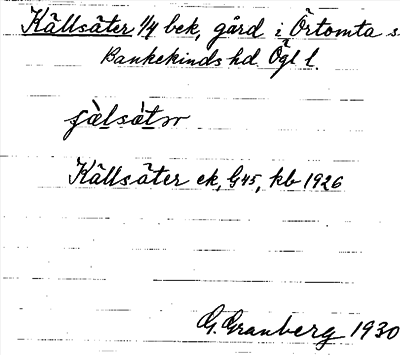 Källsäter 1/4 bek, gård i Örtomta s
Bankekinds hd Ögl l.
Källsäter ek, G45, kb 1926
G. Granberg 1930